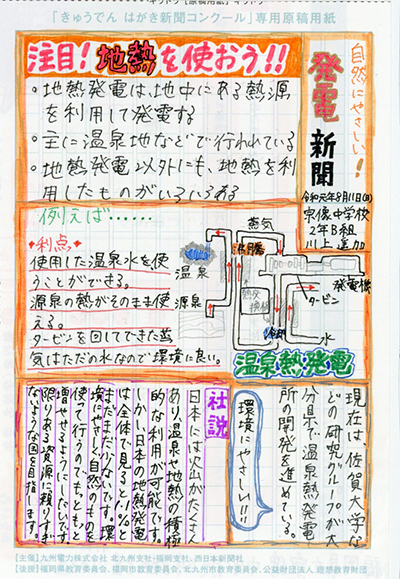 「きゅうでん はがき新聞コンクール」専用原稿用紙
自然にやさしい!
発電新聞
令和元年8月11日(日)
宗像中学校
2年B組
川上
注目!地熱を使おう!!
・地熱発電は、地中にある熱源
を利用して発電する
・主に温泉地などで行われている
・地熱発電以外にも、地熱を利
用したものがいろいろある
例えば……
・利点
使用した温泉水を使
うことができる。
源泉の熱がそのまま使
える。
タービンを回してできた蒸
気はただの水なので環境に良い。
蒸気
沸騰
温泉
源泉
熱交換機
発電機
タービン
冷却
水
温泉熱発電
現在は、佐賀大学な
どの研究グループが大
分県で温泉熱発電
所の開発を進めている。
環境にやさしい!!
社説
日本には火山がたくさん
あり、温泉や地熱の積極
的な利用が可能です。
しかし、日本の地熱発電
は全体で見ると、1%と
まだまだ少ないです。環
境にやさしく自然のものを
使って行うのでもっともっと
増やせるようにしたいです。
限りある資源に頼りすぎ
ないような国を目指します。
【主催】九州電力株式会社 北九州支社・福岡支社、西日本新聞社
【後援】福岡県教育委員会、福岡市教育委員会、北九州市教育委員会、公益財団法人 理想教育財団